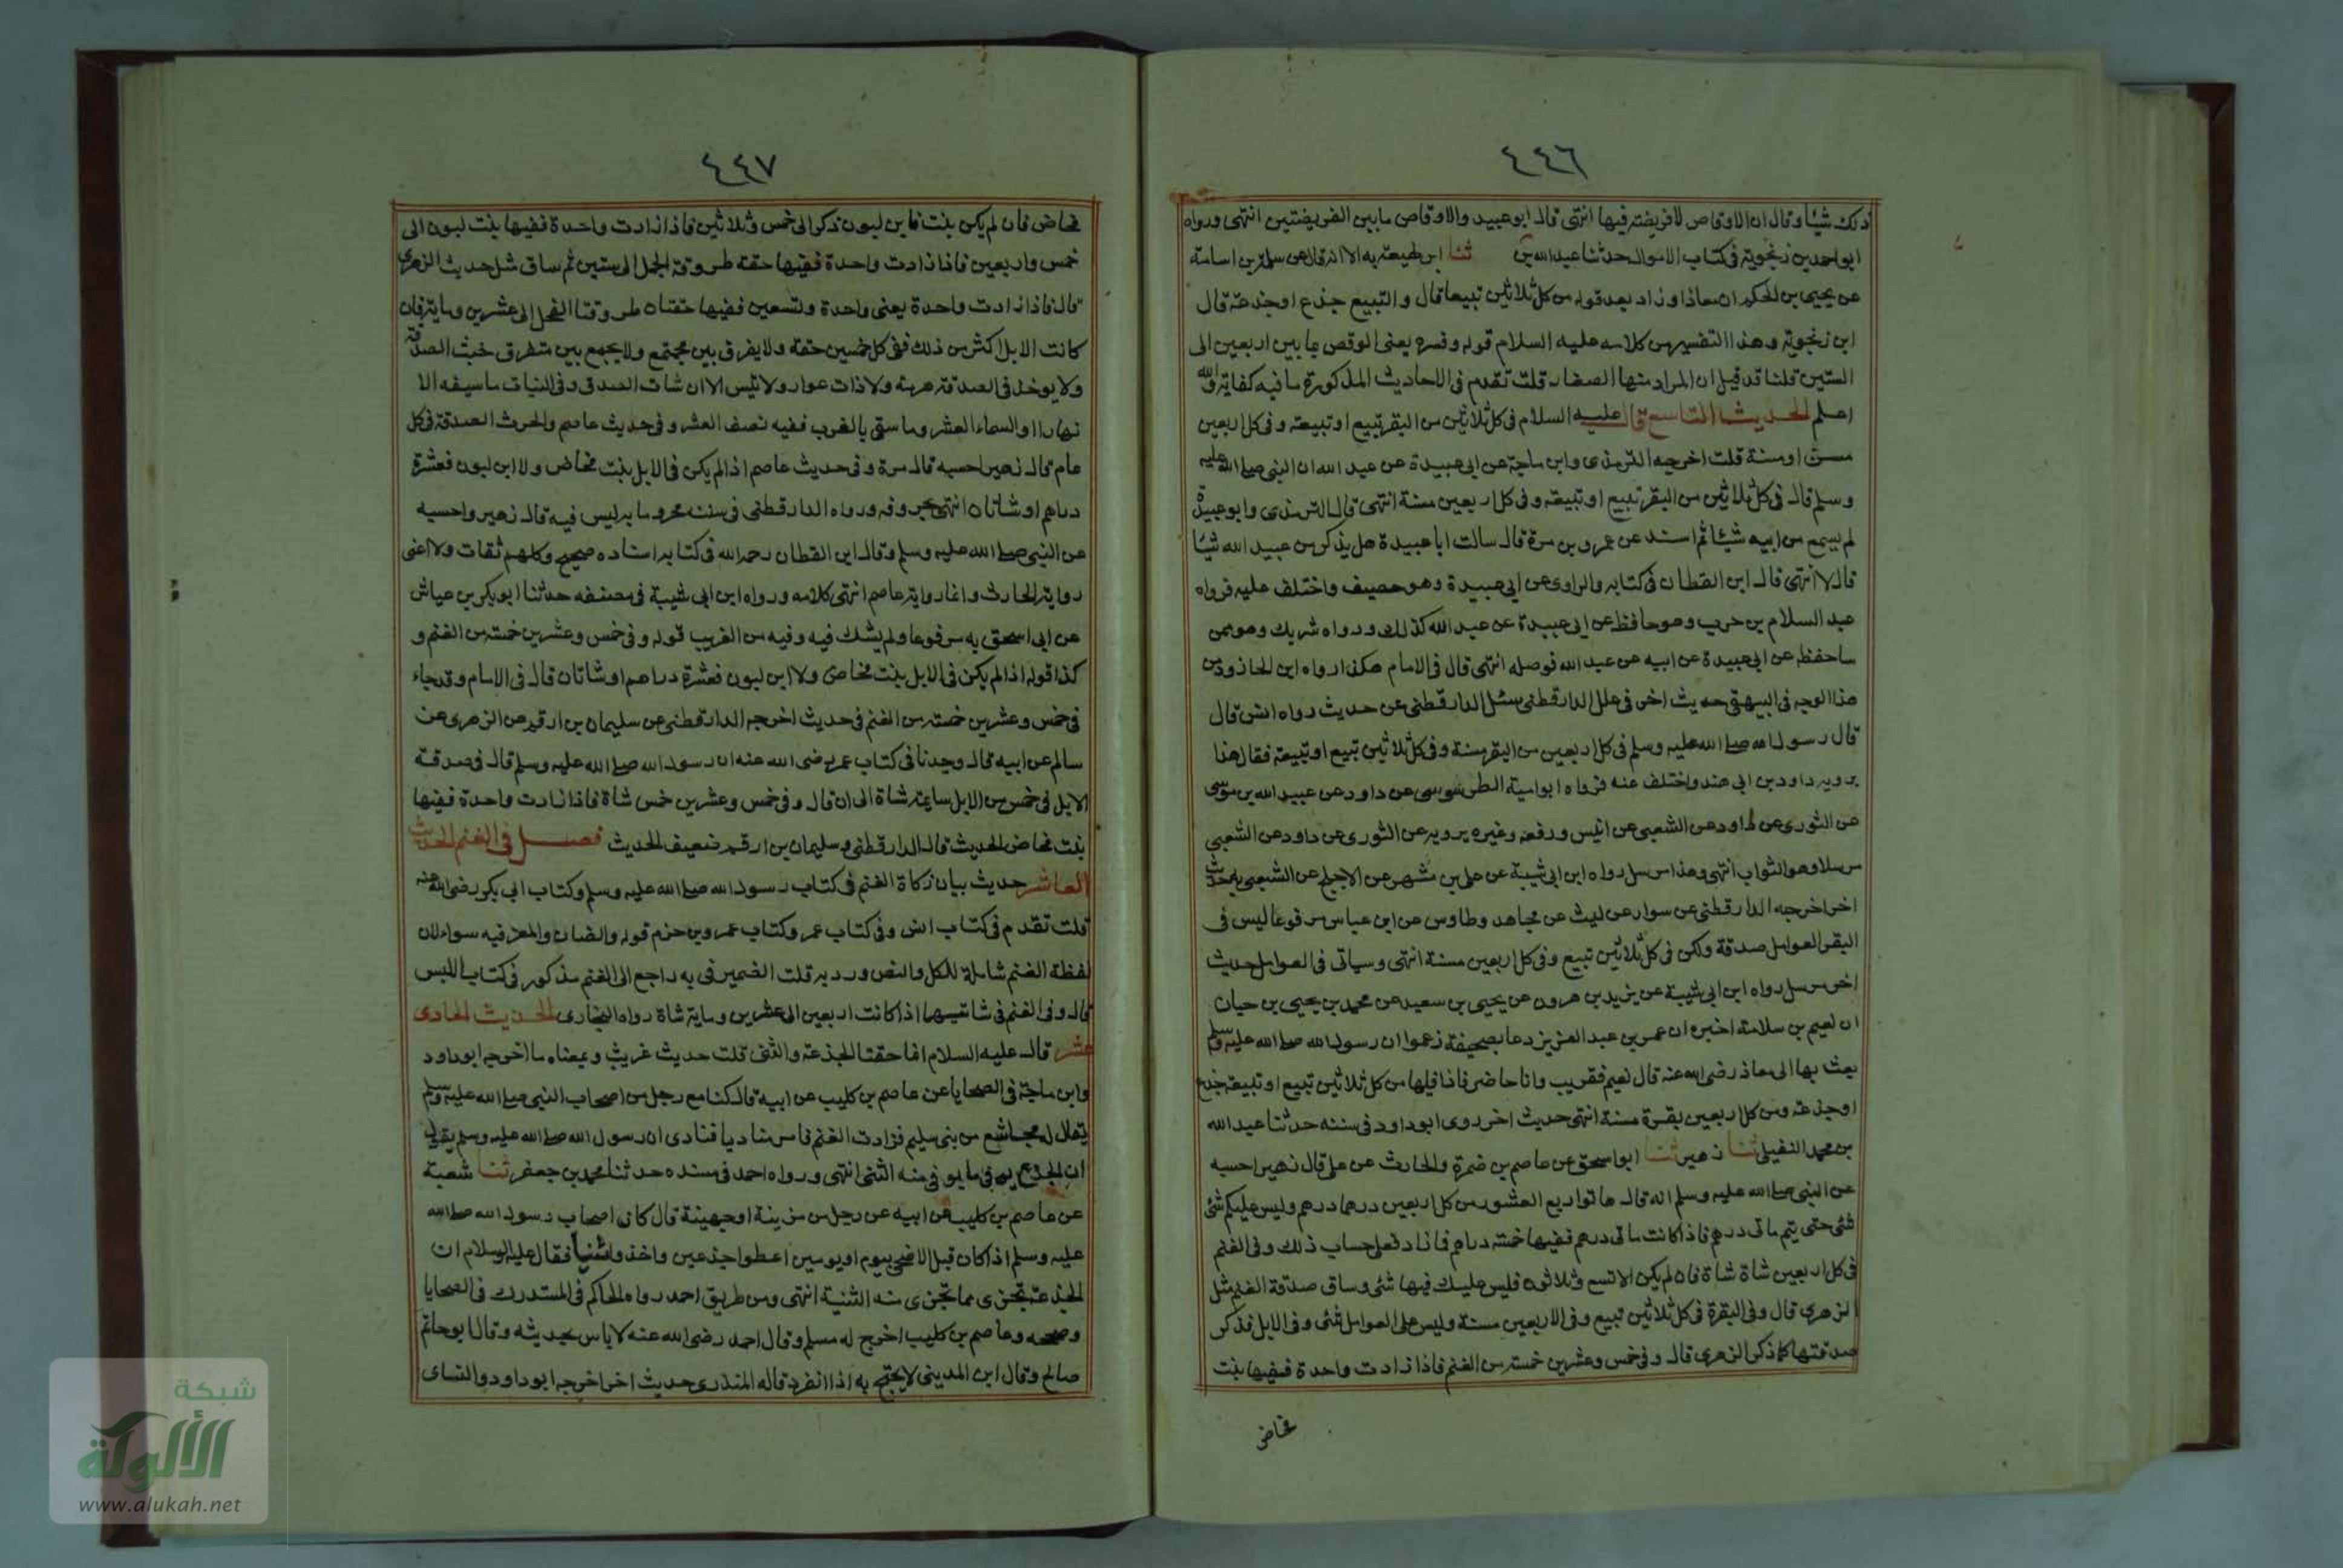 ٤٤٦
ذلك شيئا وقال ان الاوقاص لا فريضة فيها انتهى قال ابو عبيد والاوقاص ما بين الفريضتين انتهى ورواه
ابو احمد بن زنجوية فى كتاب الاموال حدثنا عبد الله بن ثنا ابن لهيعة به الا انه قال عن سلمة بن اسامة
عن يحيى بن الحكم ان معاذا وزاد بعد قوله من كل ثلاثين تبيعا قال والتبيع جذع او جذعة قال
ابن زنجوية وهذا التفسير من كلامه عليه السلام قوله وفسره يعنى الوقص بما بين اربعين الى
الستين قلنا قد قيل ان المراد منها الصغار قلت تقدم فى الاحاديث المذكورة ما فيه كفاية والله
اعلم الحديث التاسع قال عليه السلام فى كل ثلاثين من البقر تبيع او تبيعة وفى كل اربعين
مسن او مسنة قلت اخرجه الترمذى وابن ماجة عن ابى عبيدة عن عبد الله ان النبى صلى الله عليه
وسلم قال فى كل ثلاثين من البقر تبيع او تبيعة وفى كل اربعين مسنة انتهى قال الترمذى وابو عبيدة
لم يسمع من ابيه شيئا ثم اسند عن عمرو بن مرة قال سالت ابا عبيدة هل يذكر من عبيد الله شيئا
قال لا انتهى قال ابن القطان فى كتابه والراوى عن ابى عبيدة وهو حصيف واختلف عليه فرواه
عبد السلام بن حرب وهو حافظ عن ابى عبيدة عن عبد الله كذلك ورواه شريك وهو ممن
ساحفظه عن ابى عبيدة عن ابيه عن عبد الله فوصله انتهى قال فى الامام هكذا رواه ابن الجارود من
هذا الوجه فى البيهقى حديث اخر فى علل الدارقطنى سئل الدارقطنى عن حديث رواه انس قال
قال رسول الله صلى الله عليه وسلم فى كل اربعين من البقر مسنة وفى كل ثلاثين تبيع او تبيعة فقال هذا
يرويه داود بن ابى هند واختلف عنه فرواه ابو امية الطرسوسى عن داود عن عبيد الله بن موسى
عن الثورى عن داود عن الشعبى عن انس ورفعه وغيره يرويه عن الثورى عن داود عن الشعبى
مرسلا وهو الثواب انتهى وهذا مرسل رواه ابن ابى شيبة عن على بن مسهر عن الاجلح عن الشعبى به حديث
اخر اخرجه الدارقطنى عن سوار عن ليث عن مجاهد وطاوس عن ابن عباس مرفوعا ليس فى
البقر العوامل صدقة ولكن فى كل ثلاثين تبيع وفى كل اربعين مسنة انتهى وسياتى فى العوامل حديث
اخر مرسل رواه ابن ابى شيبة عن يزيد بن هرون عن يحيى بن سعيد عن محمد بن يحيى بن حيان
ان نعيم بن سلامة اخبره ان عمر بن عبد العزيز دعا بصحيفة زعموا ان رسول الله صلى الله عليه وسلم
بعث بها الى معاذ رضى الله عنه قال نعيم فقريت وانا حاضر فاذا فيها من كل ثلاثين تبيع او تبيعة جذع
او جذعة ومن كل اربعين بقرة مسنة انتهى حديث اخر روى ابو داود فى سننه حدثنا عبد الله
بن محمد النفيلى ثنا زهير ثنا ابو اسحق عن عاصم بن ضمرة والحارث عن على قال زهير احسبه
عن النبى صلى الله عليه وسلم انه قال هاتوا ربع العشور من كل اربعين درهما درهم وليس عليكم شئ
شئ حتى يتم مائتى درهم فاذا كانت مائتى درهم ففيها خمسة دراهم فاذا فعلى حساب ذلك وفى الغنم
فى كل اربعين شاة شاة فان لم يكن الا تسع وثلاثون فليس عليك فيها شئ وساق صدقة الغنم مثل
الزهرى قال وفى البقرة فى كل ثلاثين تبيع وفى الاربعين مسنة وليس على العوامل شئ وفى الابل فذكر
صدقتها كما ذكر الزهرى قال وفى خمس وعشرين خمسة من الغنم فاذا زادت واحدة ففيها بنت
مخاض
٤٤٧
مخاض فان لم يكن بنت فابن لبون ذكر الى خمس وثلاثين فاذا زادت واحدة ففيها بنت لبون الى
خمس واربعين فاذا زادت واحدة ففيها حقة طروقة الجمل الى ستين ثم ساق مثل حديث الزهرى
قال فاذا زادت واحدة يعنى واحدة وتسعين ففيها حقتان طروقتا الفحل الى عشرين وماية فان
كانت الابل اكثر من ذلك ففى كل خمسين حقة ولا يفرق بين مجتمع ولا يجمع بين متفرق خشية الصدقة
ولا يوخذ فى الصدقة هرمة ولا ذات عوار ولا تيس الا ان شات المصدق وفى النبات ما سيفه الا
نهار او السماء العشر وما سقى بالغرب ففيه نصف العشر وفى حديث عاصم والحرث الصدقة فى كل
عام قال زهير احسبه قال مرة وفى حديث عاصم اذا لم يكن فى الابل بنت مخاض ولا ابن لبون فعشرة
دراهم او شاتان انتهى بحروفه ورواه الدارقطنى فى سننه مجروما به ليس فيه قال زهير واحسبه
عن النبى صلى الله عليه وسلم وقال ابن القطان رحمه الله فى كتابه اسناده صحيح وكلهم ثقات ولا اعنى
رواية الحارث وانما رواية عاصم انتهى كلامه ورواه ابن ابى شيبة فى مصنفه حدثنا ابو بكر بن عياش
عن ابى اسحق به مرفوعا ولم يشك فيه وفيه من الغريب قوله وفى خمس وعشرين خمسة من الغنم و
كذا قوله اذا لم يكن فى الابل بنت مخاض ولا ابن لبون فعشرة دراهم او شاتان قال فى الامام وقد جاء
فى خمس وعشرين خمسة من الغنم فى حديث اخرجه الدارقطنى عن سليمان بن ارقم عن الزهرى عن
سالم عن ابيه قال وجدنا فى كتاب عمر رضى الله عنه ان رسول الله صلى الله عليه وسلم قال فى صدقة
الابل فى خمس من الابل سايمة شاة الى ان قال وفى خمس وعشرين خمس شاة فاذا زادت واحدة ففيها
بنت مخاض الحديث قال الدارقطنى وسليمان بن ارقم ضعيف الحديث فصل فى الغنم الحديث
العاشر حديث بيان زكاة الغنم فى كتاب رسول الله صلى الله عليه وسلم وكتاب ابى بكر رضى الله عنه
قلت تقدم فى كتاب انس وفى كتاب عمر وكتاب عمرو بن حزم قوله والضان والمعز فيه سواء لان
لفظة الغنم شاملة للكل والنص ورد به قلت الضمير فى به راجع الى الغنم مذكور فى كتاب اللبس
قال وفى الغنم فى شائيسها اذا كانت اربعين الى عشرين وماية شاة رواه البخارى الحديث الحادى
عشر قال عليه السلام انما حقنا الجذعة والثنى قلت حديث غريب وبمعناه ما اخرجه ابو داود
وابن ماجة فى الضحايا عن عاصم بن كليب عن ابيه قال كنا مع رجل من اصحاب النبى صلى الله عليه وسلم
يقال له مجاشع من بنى سليم فزادت الغنم فامر مناديا فنادى ان رسول الله صلى الله عليه وسلم يقول
ان الجذع يوفى ما يوفى منه الثنى انتهى ورواه احمد فى مسنده حدثنا محمد بن جعفر ثنا شعبة
عن عاصم بن كليب عن ابيه عن رجل من مزينة او جهينة قال كان اصحاب رسول الله صلى الله
عليه وسلم اذا كان قبل الاضحى بيوم او يومين اعطوا جذعين واخذوا ثنيا فقال عليه السلام ان
الجذعة تجزى مما تجزى منه الثنية انتهى ومن طريق احمد رواه الحاكم فى المستدرك فى الضحايا
وصححه وعاصم بن كليب اخرج له مسلم وقال احمد رضى الله عنه لا باس بحديثه وقال ابو حاتم
صالح وقال ابن المدينى لا يحتج به اذا انفرد قاله المنذرى حديث اخر اخرجه ابو داود والنساى
شبكة
الألوكة
www.alukah.net